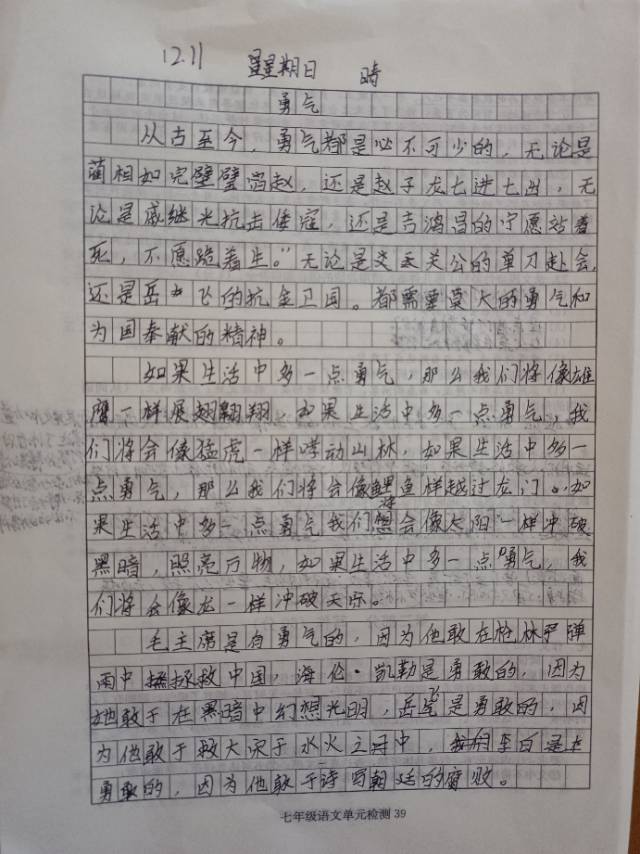 12.11 星期日 晴
勇气
从古至今，勇气都是必不可少的，无论是
蔺相如完璧归赵，还是赵子龙七进七出，无
论是戚继光抗击倭寇，还是吉鸿昌的宁愿站着
死，不愿跪着生。"无论是关公的单刀赴会，
还是岳飞的抗金卫国。都需要莫大的勇气和
为国奉献的精神。
如果生活中多一点勇气，那么我们将像雄
鹰一样展翅翱翔，如果生活中多一点勇气，我
们将会像猛虎一样啸动山林，如果生活中多一
点勇气，那么我们将会像鲤鱼样越过龙门。如
果生活中多一点勇气我们将会像太阳一样冲破
黑暗，照亮万物，如果生活中多一点勇气，我
们将会像龙一样冲破天际。
毛主席是有勇气的，因为他敢在枪林弹
雨中拯救中国，海伦·凯勒是勇敢的，因为
她敢于在黑暗中幻想光明，岳飞是勇敢的，因
为他敢于救大宋于水火之中，李白是
勇敢的，因为他敢于诗写朝廷的腐败。
七年级语文单元检测 39